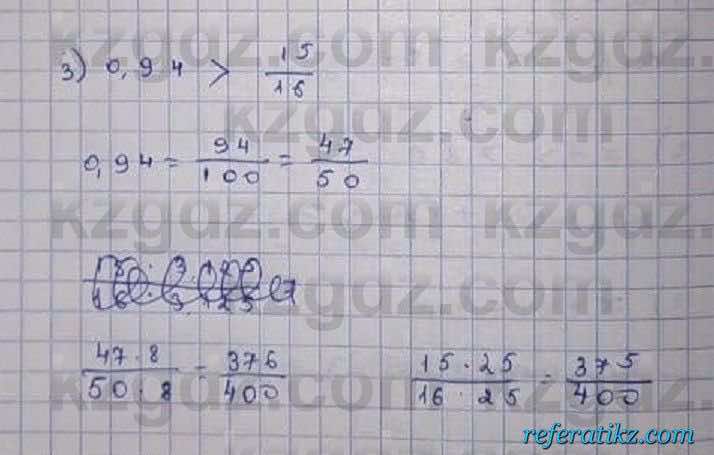 kzgdz.com
3) 0,94 > 15/16
kzgdz.com
0,94 = 94/100 = 47/50
kzgdz.com
kzgdz.com
47 · 8 / 50 · 8 = 376/400    15 · 25 / 16 · 25 = 375/400
kzgdz.com
referatikz.com